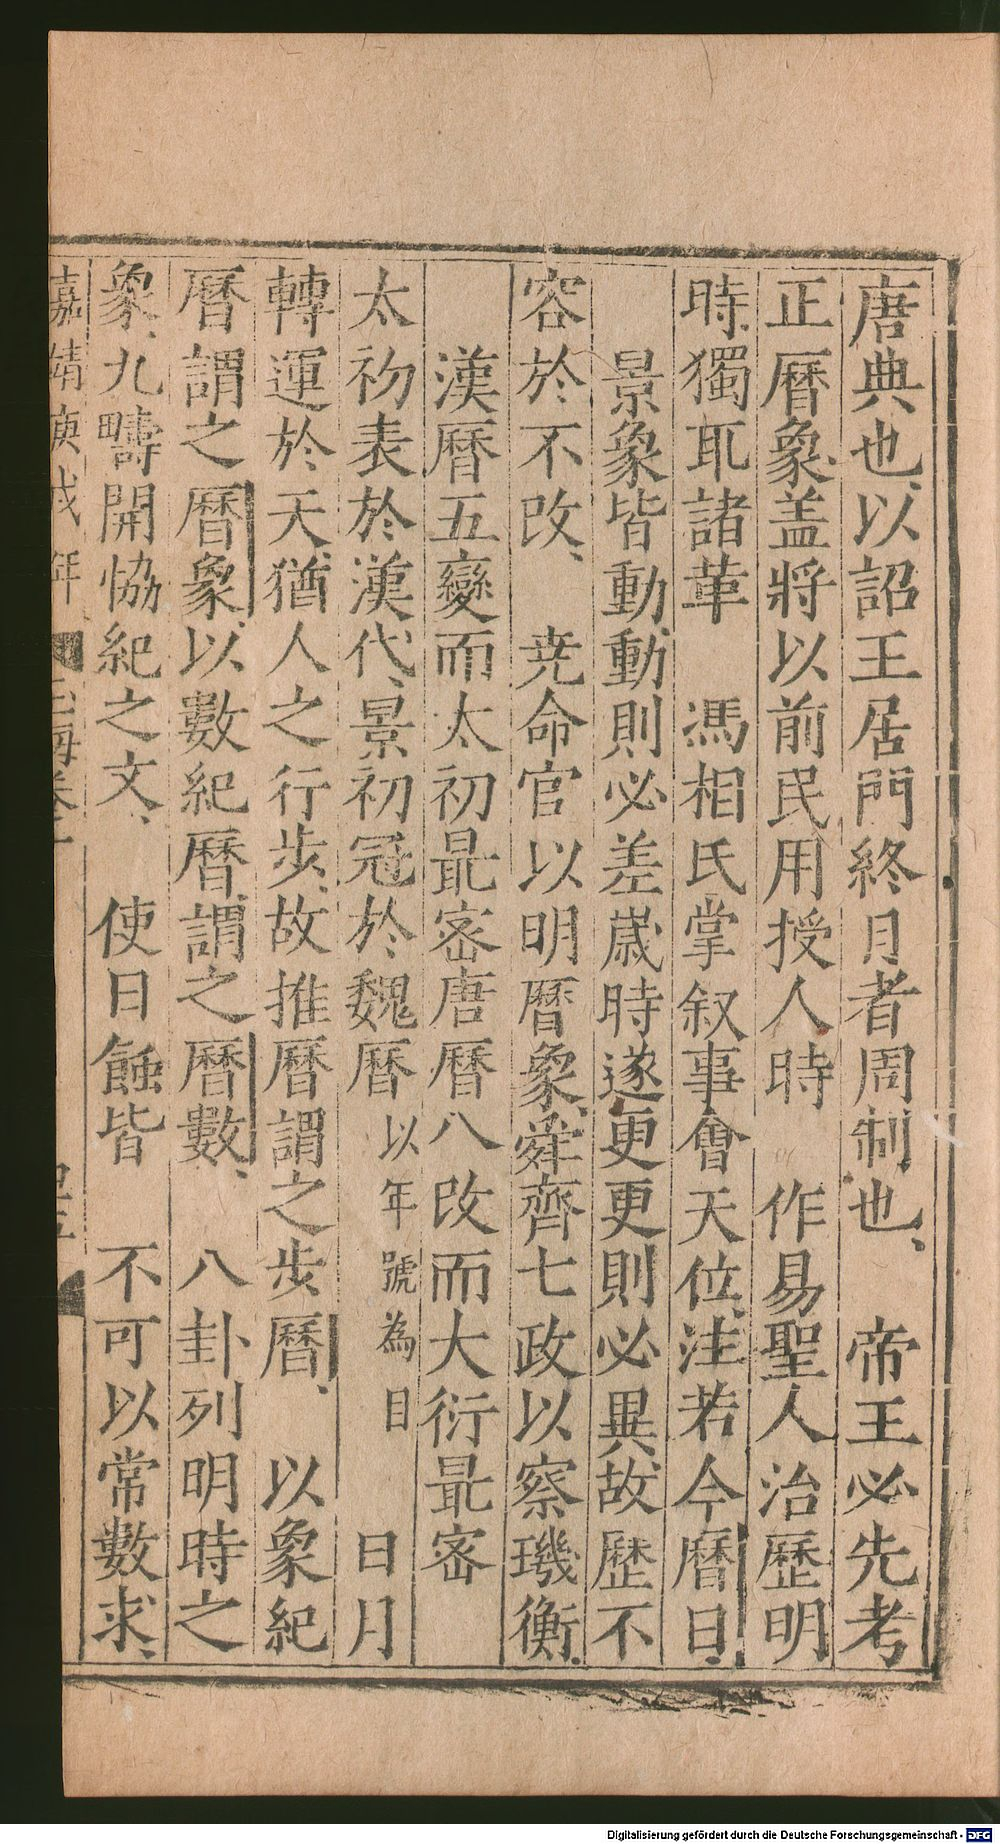 唐典也、以詔王居門終月者周制也、　帝王必先考
正曆象、盖將以前民用授人時　作易聖人治歷明
時、獨取諸革　馮相氏掌叙事會天位、注若今曆日、
景象皆動、動則必差、歲時遂更、更則必異、故歷不
容於不改、　堯命官以明曆象、舜齊七政以察璣衡、
漢曆五變而太初最密唐曆八改而大衍最密
太初表於漢代、景初冠於魏曆以年號為目　日月
轉運於天猶人之行步、故推曆謂之步曆、　以象紀
曆謂之曆象、以數紀曆、謂之曆數、　八卦列明時之
象、九疇開恊紀之文、　使日蝕皆　不可以常數求、
嘉靖庚戌年
玉海卷十
Digitalisierung gefördert durch die Deutsche Forschungsgemeinschaft - DFG